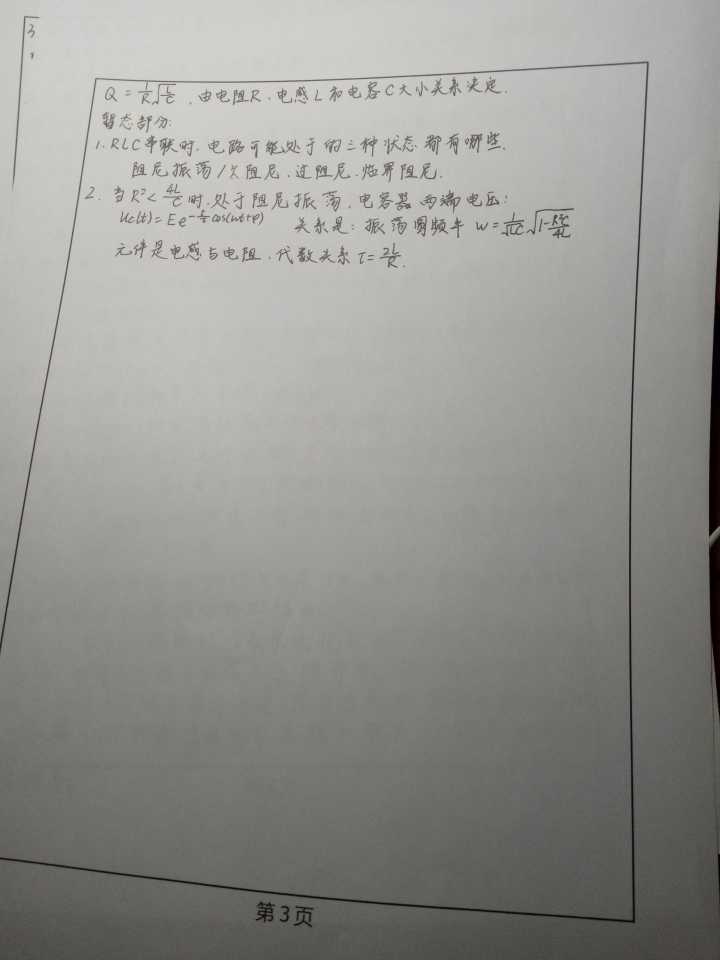 3
Q = \frac{1}{R}\sqrt{\frac{L}{C}}，由电阻R、电感L和电容C大小关系决定.
暂态部分:
1. RLC串联时，电路可能处于的三种状态都有哪些.
阻尼振荡/欠阻尼、过阻尼、临界阻尼.
2. 当 R²<\frac{4L}{C}时，处于阻尼振荡，电容器两端电压:
Uc(t) = Ee^{-\frac{t}{τ}}cos(ωt+φ) 关系是: 振荡圆频率 w = \frac{1}{\sqrt{LC}}\sqrt{1-\frac{R²C}{4L}}
元件是电感与电阻，代数关系 τ = \frac{2L}{R}.
第3页